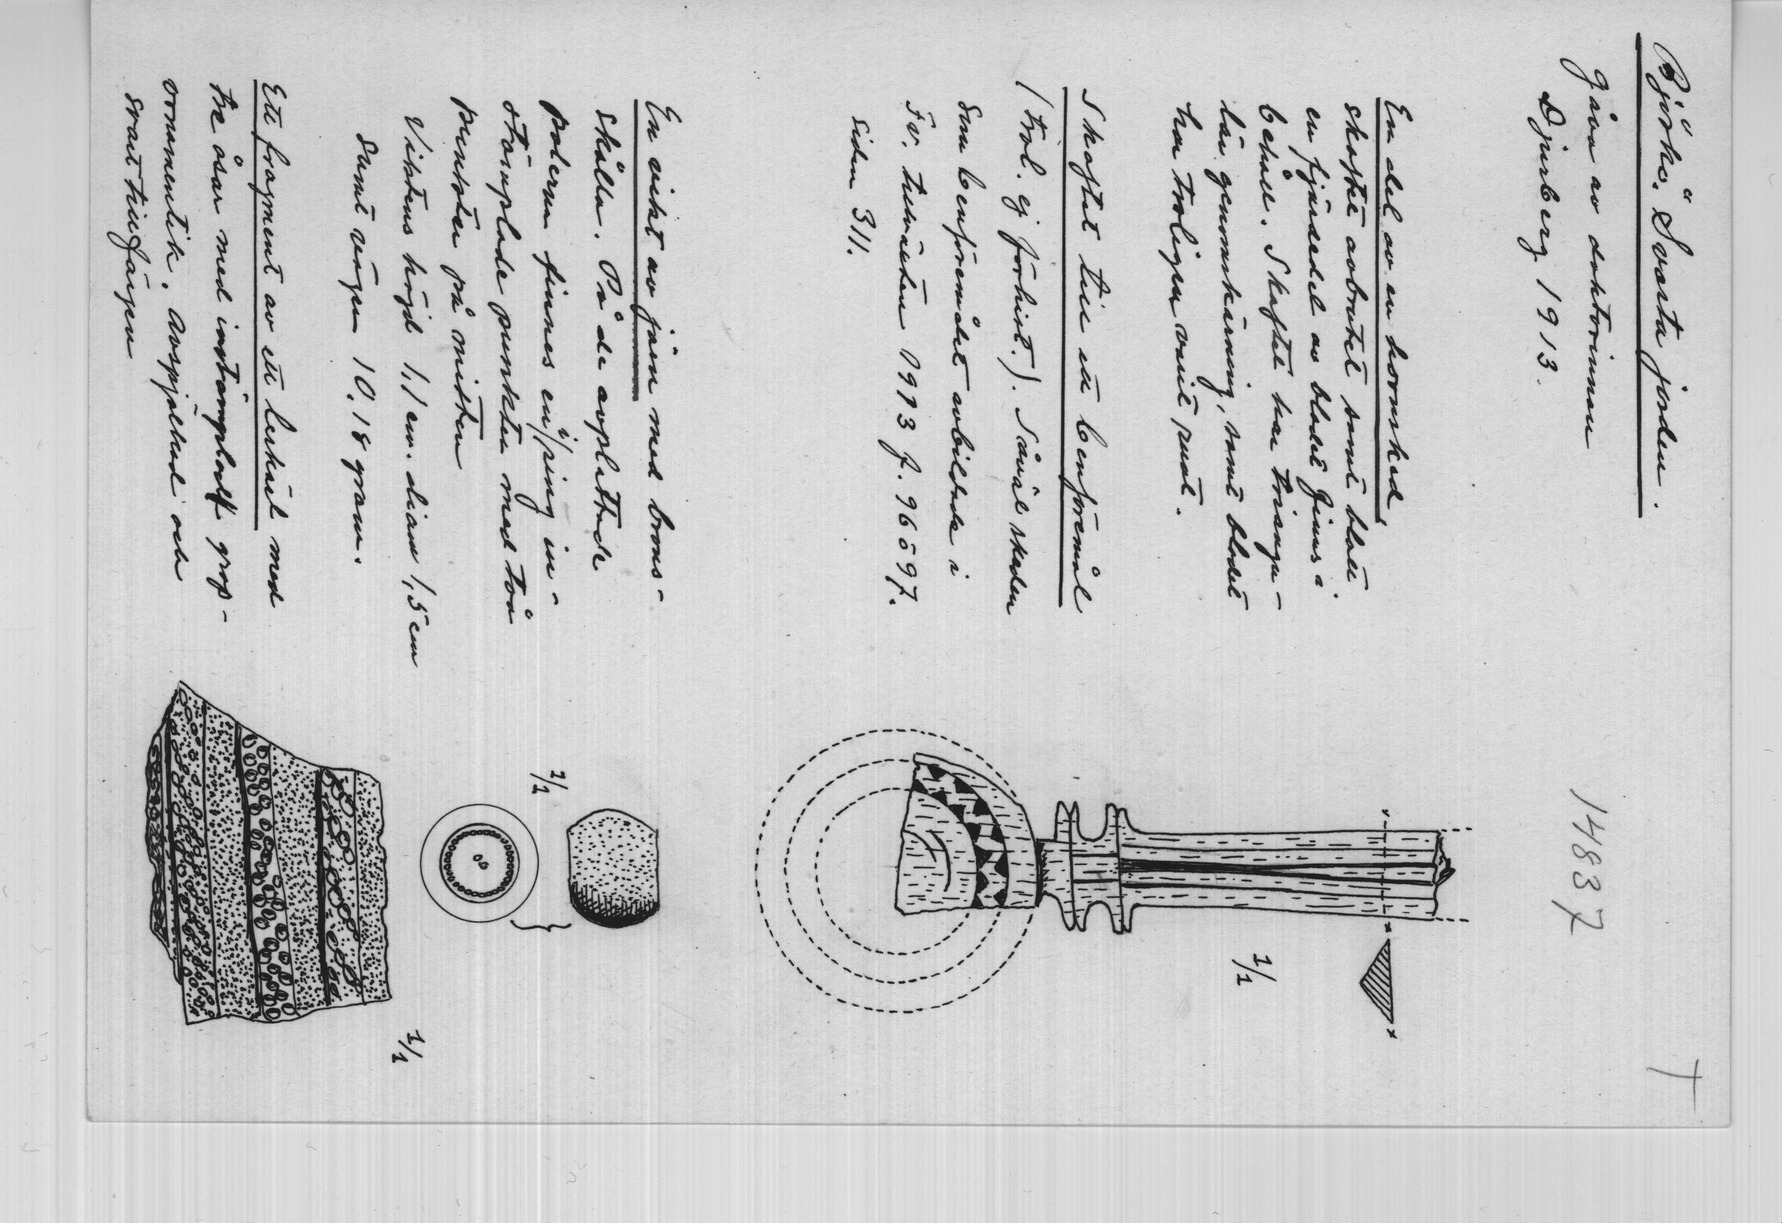 Björkö. Svarta jorden.
Gåva av doktorinnan
Djurberg 1913.
14837
En del av en hornsked,
skaftet avbrutet samt bladet
en fjärdedel av bladet finns i
behåll. Skaftet har triangu-
lär genomskärning, samt bladet
har troligen varit runt.
1/1
Skaftet till ett benföremål
(trol. ej förhist.). Såväl skeden
som benföremålet avbildade i
Fv. 1913 f. 96 o 97.
sidan 311.
En vikt av järn med brons-
skålla. På de avplattade
polerna finnes en i ring in-
stämplade punkter med två
punkter på mitten
Viktens höjd 1,1 cm. diam 1,5 cm
samt väger 10,18 gram.
1/1
Ett fragment av ett lerkärl med
tre åsar med instämplad grop-
ornamentik. Avspjälkad och
svart till färgen
1/1